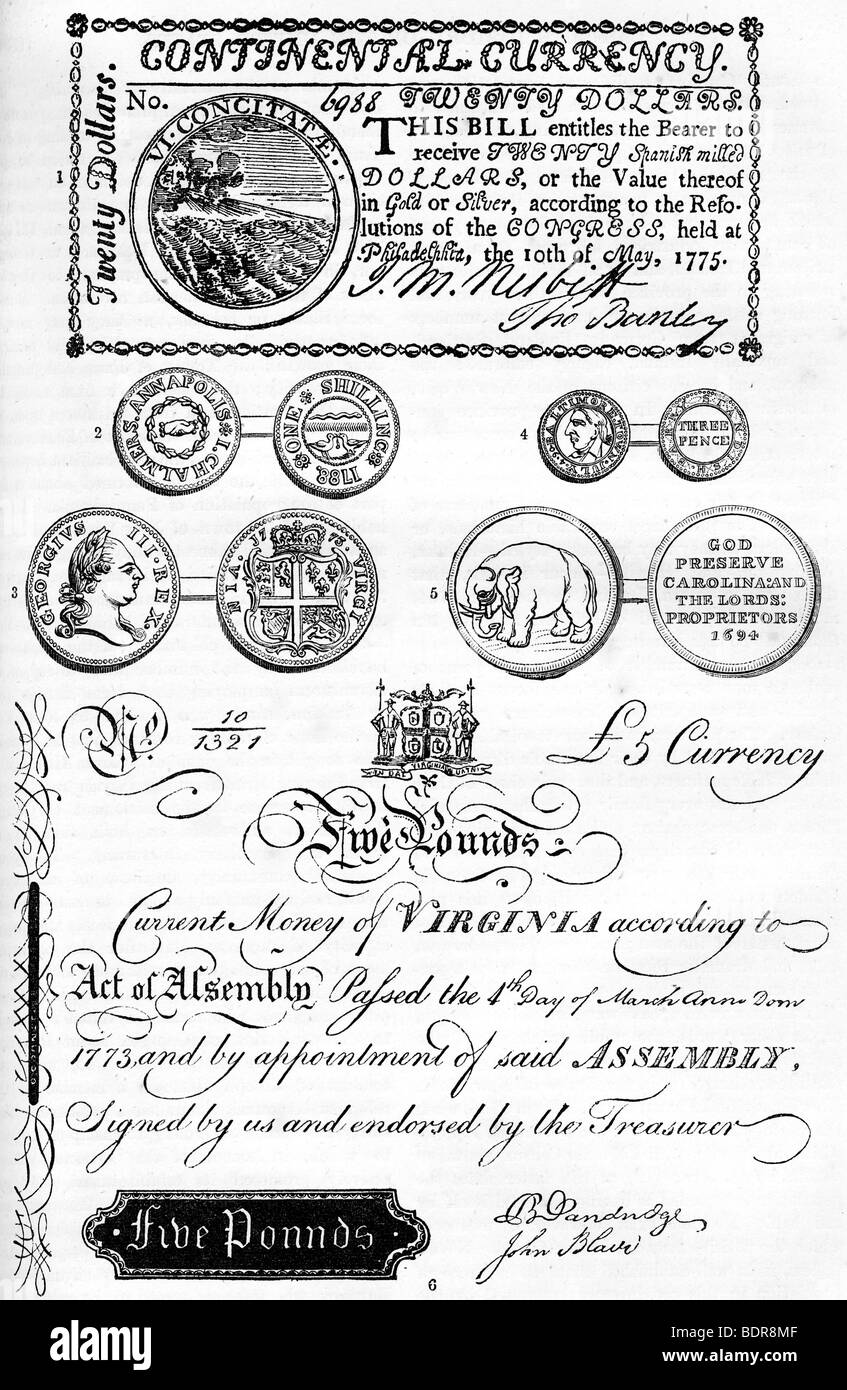 CONTINENTAL CURRENCY.
Twenty Dollars.
No. 6988 TWENTY DOLLARS.
VI·CONCITATÆ·
THIS BILL entitles the Bearer to
receive TWENTY Spanish milled
DOLLARS, or the Value thereof
in Gold or Silver, according to the Reso-
lutions of the CONGRESS, held at
Philadelphia, the 10th of May, 1775.
J. M. Nesbitt
1
2
I. CHALMERS. ANNAPOLIS
ONE SHILLING
1788
4
BALTIMORE TOWN
STAND
THREE
PENCE
3
GEORGIVS III·REX.
1773. VIRGI NIA.
5
GOD
PRESERVE
CAROLINA:AND
THE LORDS:
PROPRIETORS
1694
No. 10
1321
£5 Currency
EN DAT VIRGINIA
Five Pounds
Current Money of VIRGINIA according to
Act of Assembly Passed the 4th Day of March Anno Dom
1773, and by appointment of said ASSEMBLY,
Signed by us and endorsed by the Treasurer
Five Pounds
B Dandridge
John Blair
6
alamy
Image ID: BDR8MF
www.alamy.com